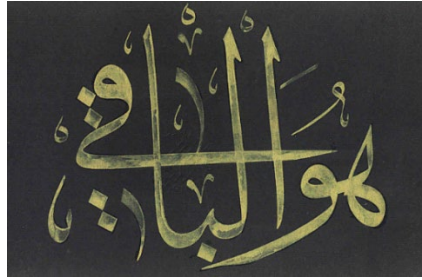 هو الباقي